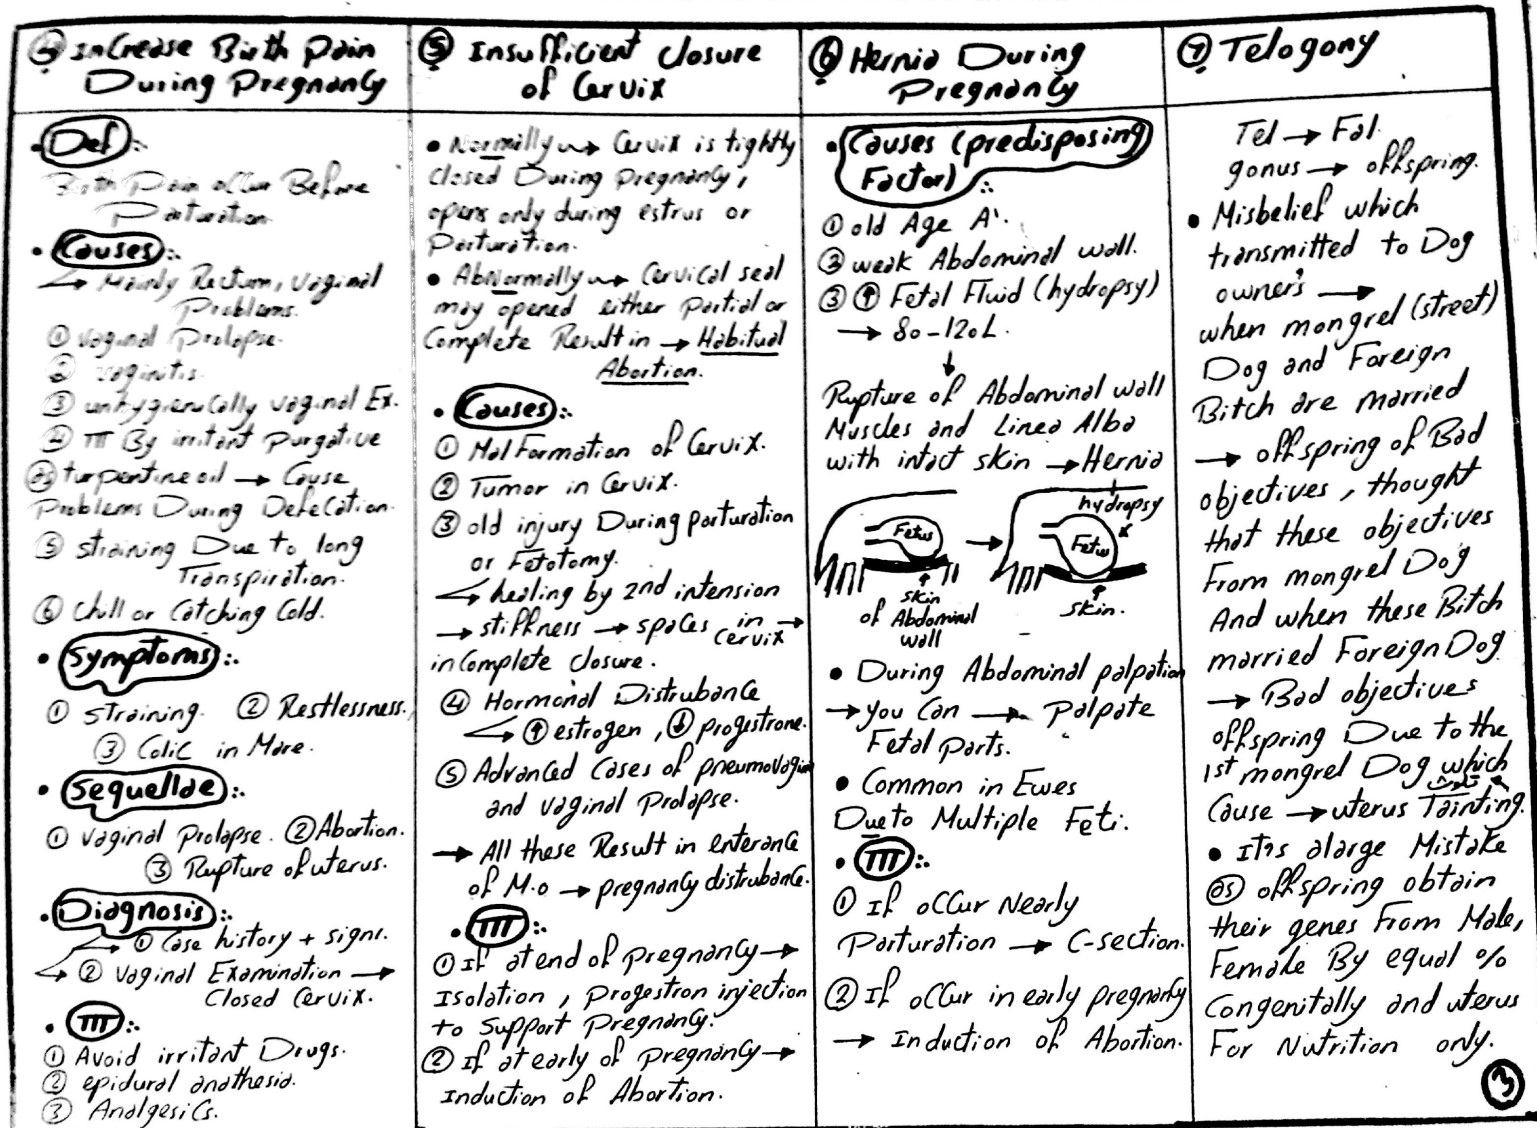 ④ Increase Birth Pain
During Pregnancy
• Def :.
Birth Pain occur Before
Parturation.
• Causes :.
→ Mainly Rectum, vaginal
Problems.
① vaginal Prolapse.
② vaginitis.
③ unhygienically vaginal Ex.
④ TTT By irritant Purgative
as turpentine oil → Cause
Problems During Defecation.
⑤ straining Due to long
Transpiration.
⑥ chill or Catching Cold.
• Symptoms :.
① straining. ② Restlessness.
③ Colic in Mare.
• Sequellae :.
① vaginal prolapse. ② Abortion.
③ Rupture of uterus.
• Diagnosis :.
→ ① Case history + signs.
→ ② vaginal Examination →
Closed Cervix.
• TTT :.
① Avoid irritant Drugs.
② epidural anathesia.
③ Analgesics.
⑤ Insufficient closure
of Cervix
• Normally → Cervix is tightly
closed During pregnancy,
opens only during estrus or
Parturation.
• AbNormally → Cervical seal
may opened either Partial or
Complete Result in → Habitual
Abortion.
• Causes :.
① Mal Formation of Cervix.
② Tumor in Cervix.
③ old injury During parturation
or Fetotomy.
→ healing by 2nd intension
→ stiffness → spaces in cervix →
inComplete closure.
④ Hormonal Distrubance
→ ↑ estrogen, ↓ progistrone.
⑤ Advanced Cases of pneumovagina
and vaginal Prolapse.
→ All these Result in enterance
of M.o → pregnancy distrubance.
• TTT :.
① If at end of pregnancy →
Isolation, Progestron injection
to support Pregnancy.
② If at early of pregnancy →
Induction of Abortion.
⑥ Hernia During
Pregnancy
• Causes (predisposing
Factor) :.
① old Age A'.
② weak Abdominal wall.
③ ↑ Fetal Fluid (hydropsy)
→ 80-120L.
↓
Rupture of Abdominal wall
Muscles and Linea Alba
with intact skin → Hernia
hydropsy
Fetus → Fetus
skin
of Abdominal
wall
skin.
• During Abdominal palpation
→ you Can → Palpate
Fetal parts.
• Common in Ewes
Due to Multiple Feti.
• TTT :.
① If occur Nearly
Parturation → C-section.
② If occur in early pregnancy
→ Induction of Abortion.
⑦ Telogony
Tel → Fal.
gonus → offspring.
• Misbelief which
transmitted to Dog
owner's →
when mongrel (street)
Dog and Foreign
Bitch are married
→ offspring of Bad
objectives, thought
that these objectives
From mongrel Dog
And when these Bitch
married Foreign Dog
→ Bad objectives
offspring Due to the
1st mongrel Dog which
تلوث
Cause → uterus Tainting.
• It's alarge Mistake
as offspring obtain
their genes From Male,
Female By equal %
Congenitally and uterus
For Nutrition only.
③